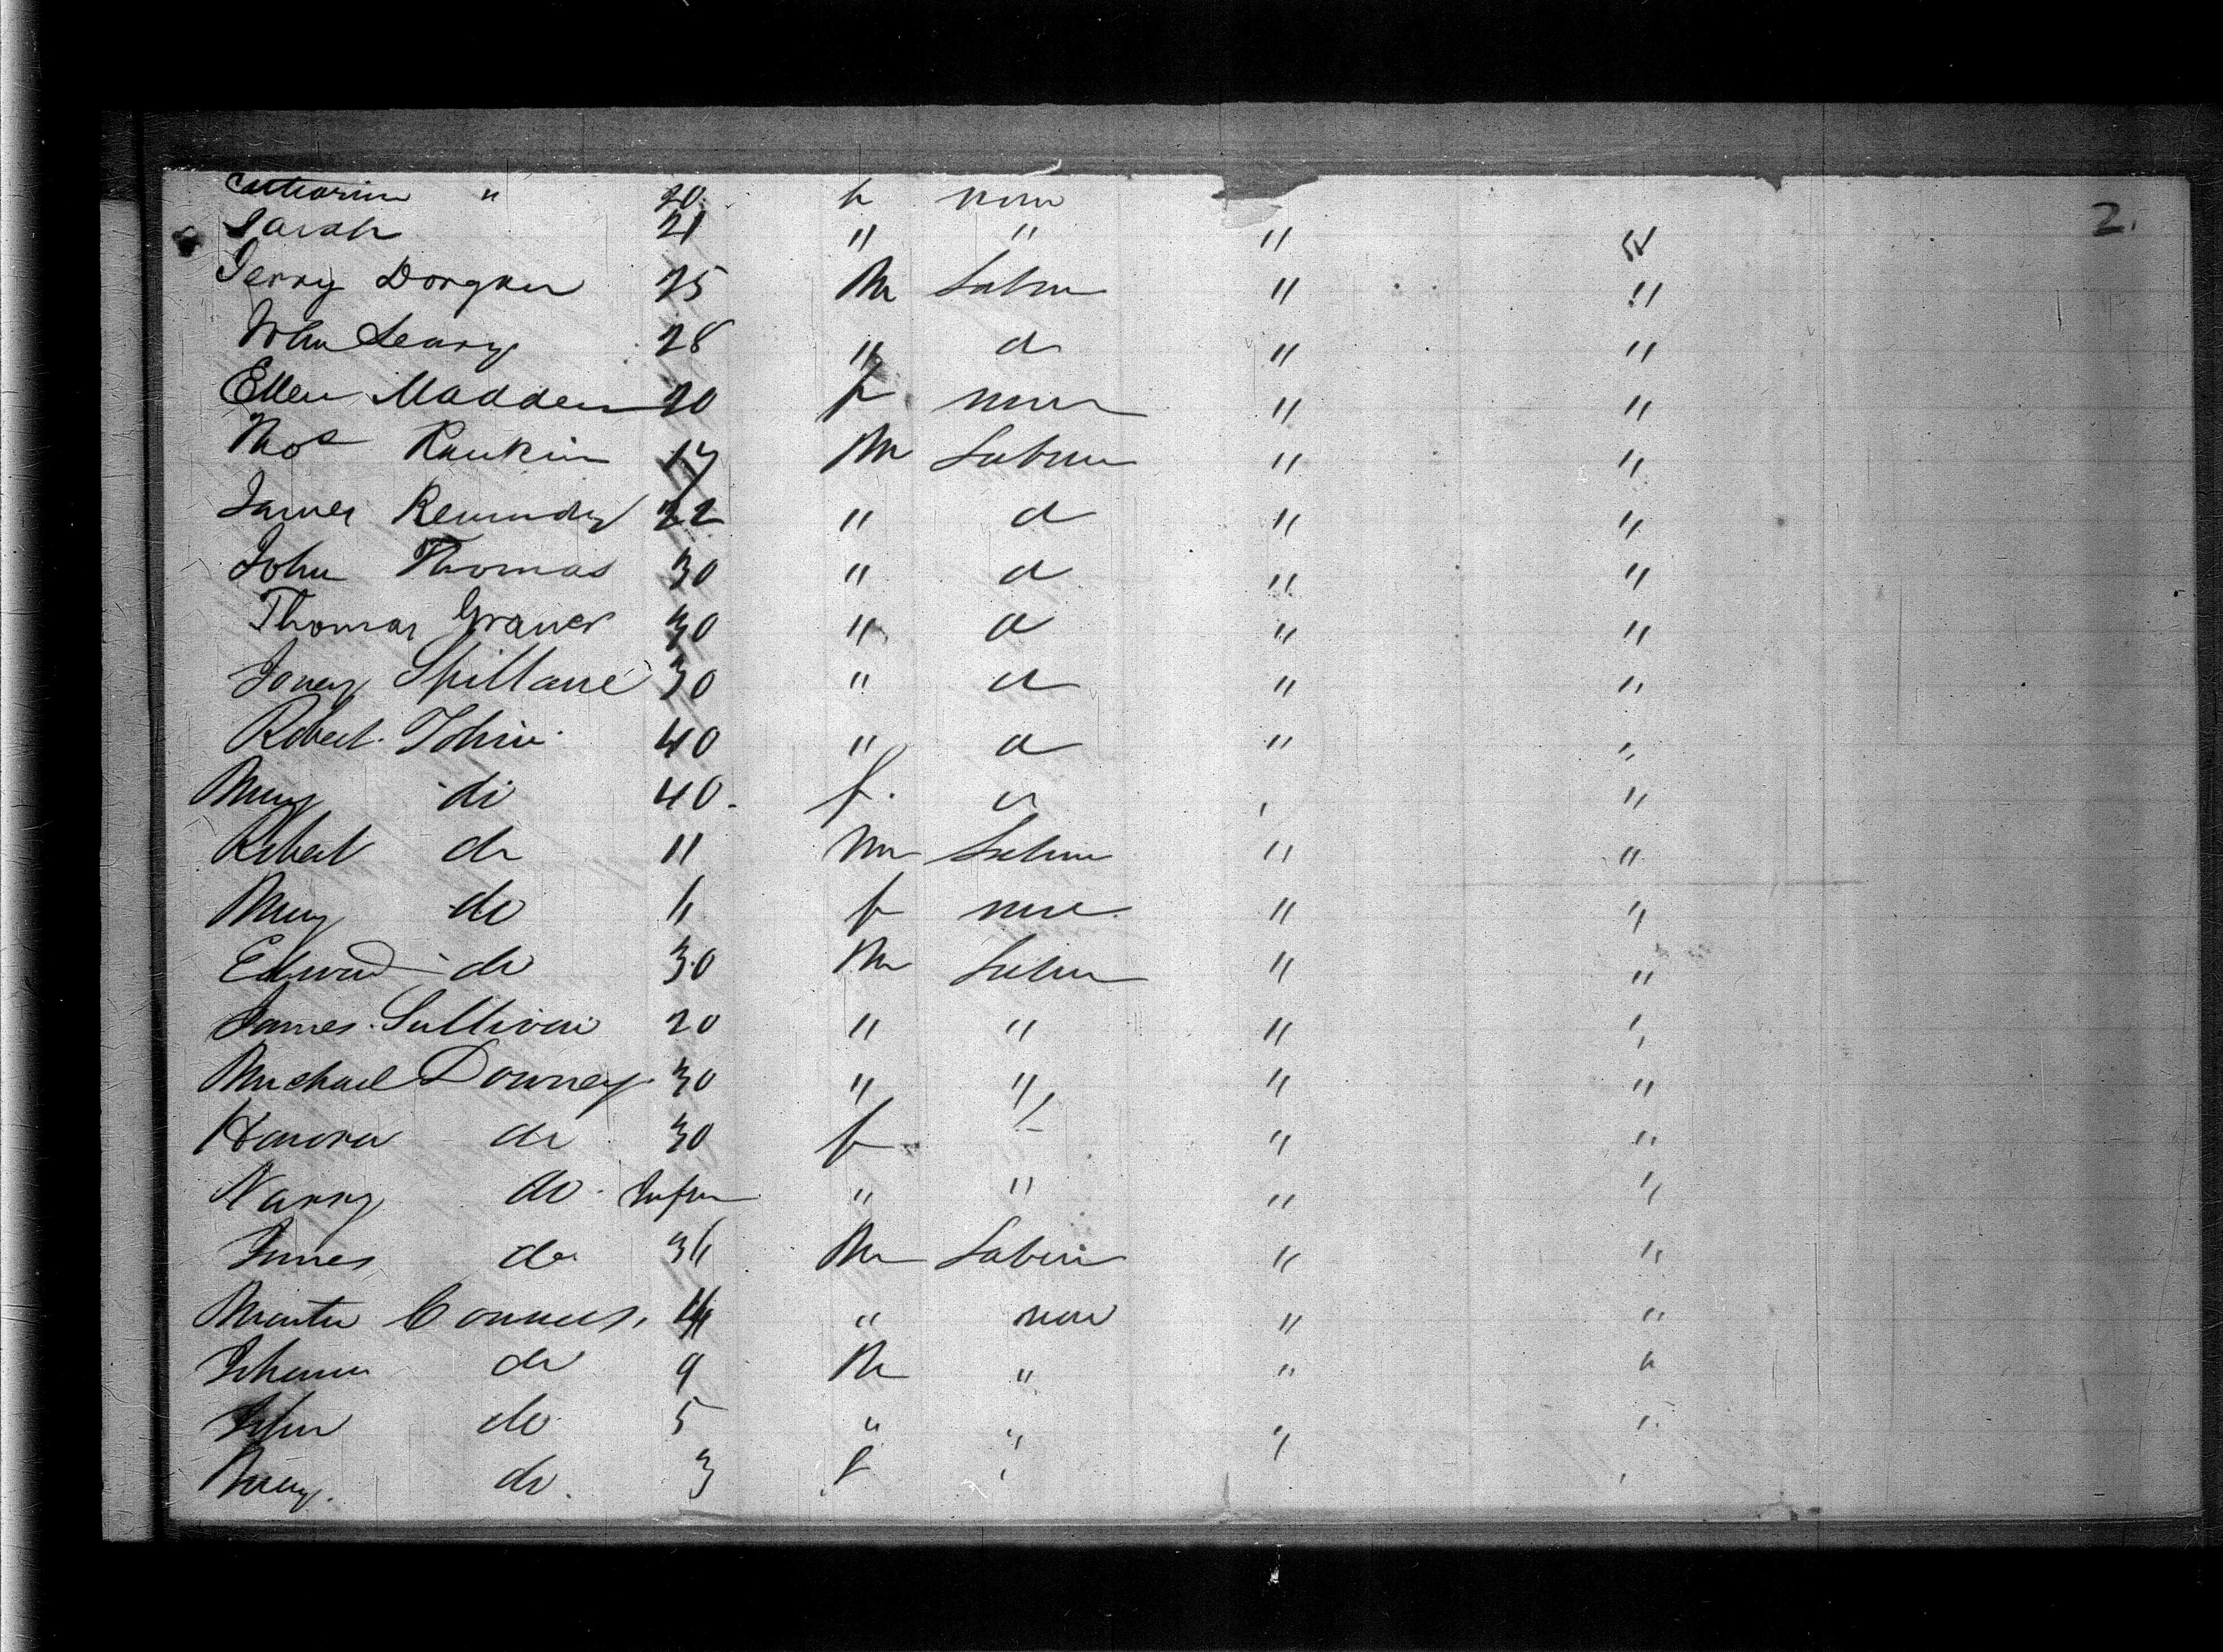 2.
Catharine " 20 f none
Sarah 21 " " " "
Jerry Dorgan 25 M Labour " "
John Leary 28 " do " "
Ellen Madden 20 f none " "
Thos Rankin 17 M Labour " "
James Kennedy 22 " do " "
John Thomas 30 " do " "
Thomas 30 " do " "
James Spillane 30 " do " "
Robert Tobin 40 " do " "
Mary do 40 f. "
Robert do 11 M Labour " "
Mary do f none " "
Edward do 30 M Labour " "
James Sullivan 20 " " " "
Michael Downey 30 " " " "
Honora do 30 f " "
do Infan " " " "
James do M Labour " "
Connors " none " "
Johanna do 9 M " " "
John do 5 " " " "
Mary do 3 f " "